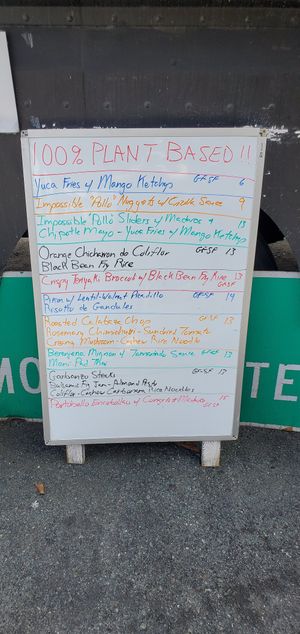 100% PLANT BASED !!
Yuca Fries w/ Mango Ketchup GF SF 6
Impossible "Pollo" Nuggets w/ Sauce 9
Impossible "Pollo" Sliders w/ Maduros + 13
Chipotle Mayo - Yuca Fries w/ Mango Ketchup
Orange Chicharron de Coliflor GF SF 13
Black Bean Fry Rice
Crispy Teriyaki Broccoli w/ Black Bean Fry Rice 13
GF SF
w/ Lentil-Walnut Picadillo GF SF 14
Risotto de Gandules
Roasted Calabaza Chop GF SF 13
Rosemary Chimichurri - Sundried Tomato
Creamy Mushroom - Cashew Rice Noodle
Berenjena Mignon w/ Tamarindo Sauce GF SF 13
Mani Pad Thai
Steak GF SF 13
Balsamic Fig Jam - Almond
Coliflor - Cashew Carbonara Rice Noodles
Portobello w/ Congri + Maduros 15
GF SF
MO
TE